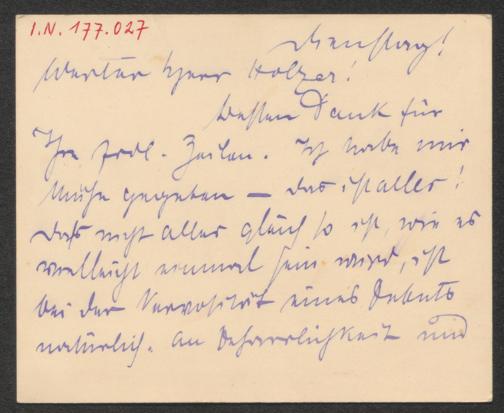 I.N. 177.027
Dienstag!
Werter Herr Holzer!
Besten Dank für
Ihre frdl. Zeilen. Ich habe mir
Mühe gegeben – das ist alles!
Daß nicht alles gleich so ist, wie es
vielleicht einmal sein wird, ist
bei der Nervosität eines Debuts
natürlich. An Beharrlichkeit und